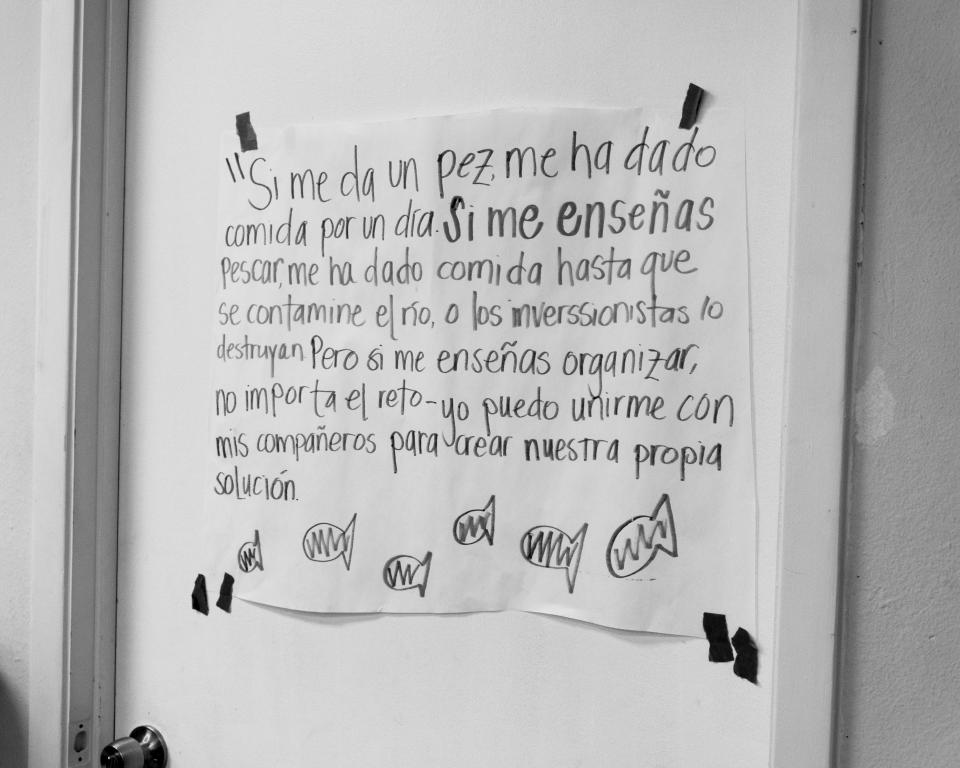 "Si me da un pez, me ha dado
comida por un día. Si me enseñas
pescar, me ha dado comida hasta que
se contamine el río, o los inverssionistas lo
destruyan. Pero si me enseñas organizar,
no importa el reto - yo puedo unirme con
mis compañeros para crear nuestra propia
solución.